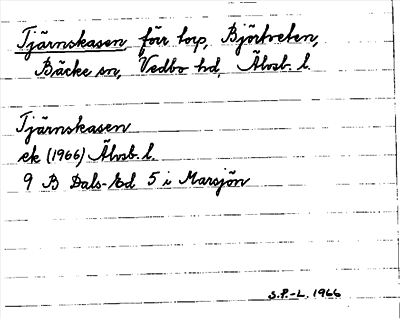 Tjärnskasen förr torp, Björtveten,
Bäcke sn, Vedbo hd, Älvsb. l.
Tjärnskasen
ek (1966) Älvsb. l.
9 B Dals-Ed 5 i Marsjön
S.P.-L. 1966